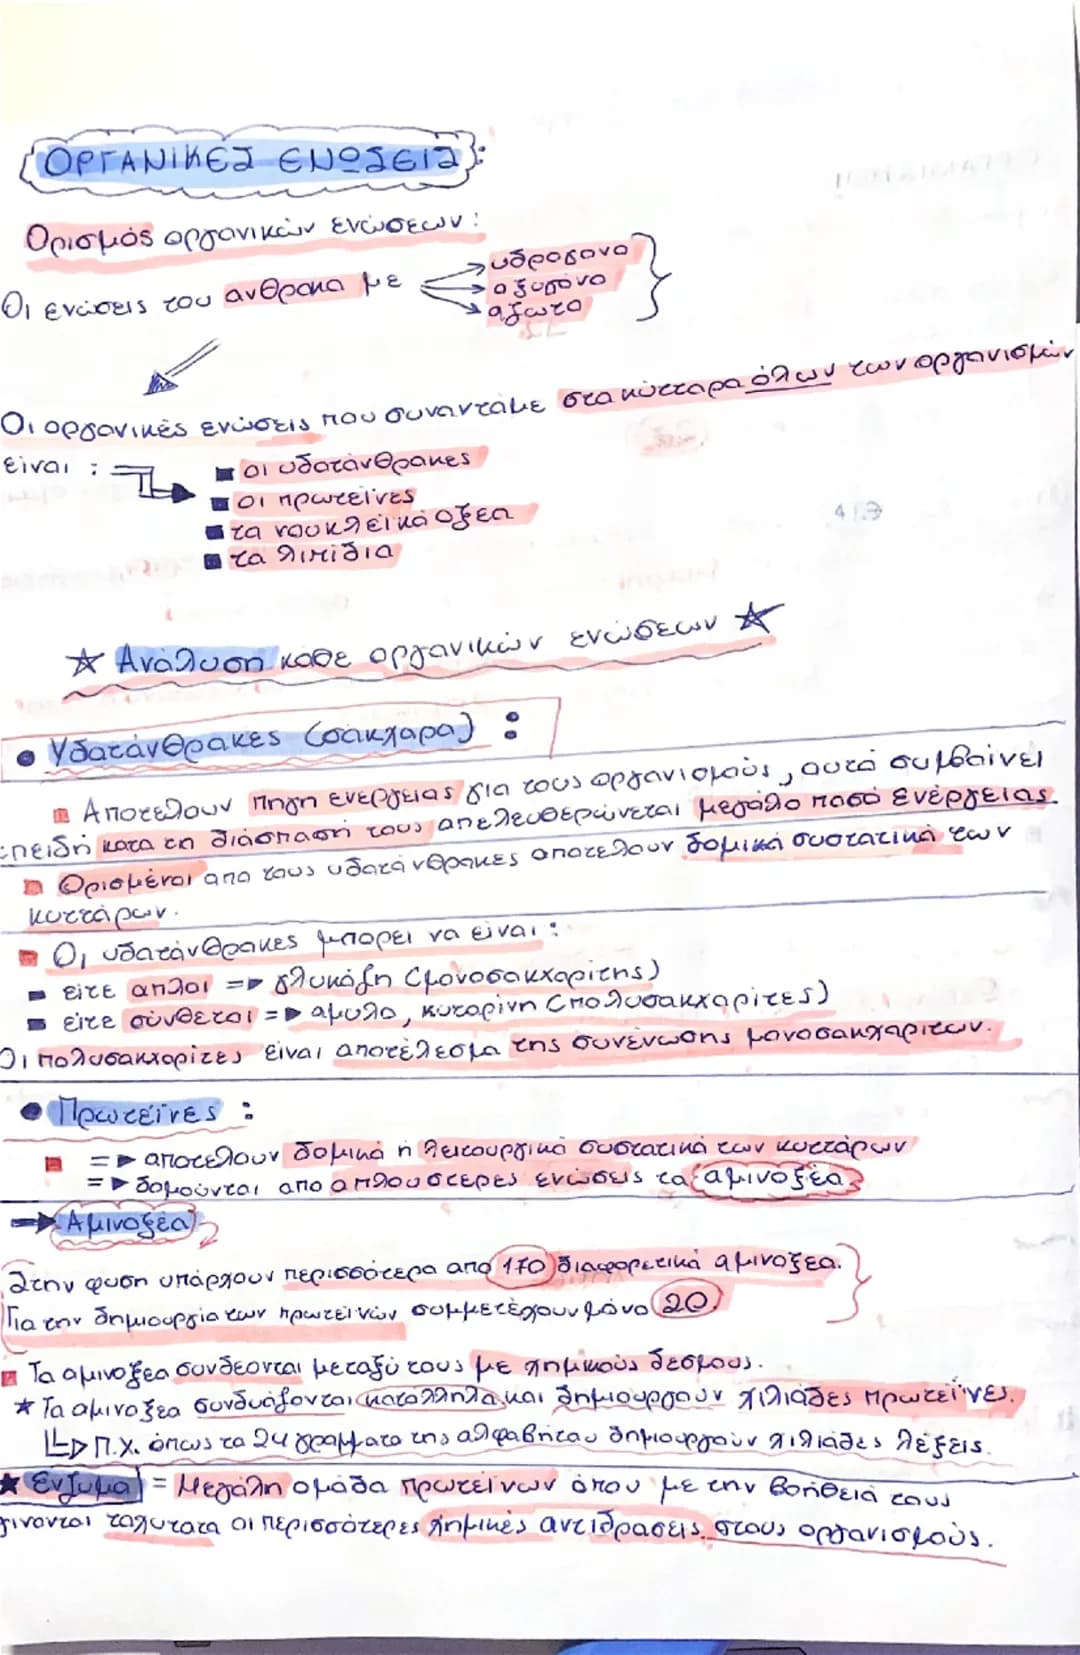 ΟΡΓΑΝΙΚΕΣ ΕΝΩΣΕΙΣ:
Ορισμός οργανικών ενώσεων:
Οι ενώσεις του άνθρακα με
υδρογόνο
οξυγόνο
άζωτο
Οι οργανικές ενώσεις που συναντάμε στα κύτταρα όλων των οργανισμών
είναι:
■ οι υδατάνθρακες
■ οι πρωτεΐνες
■ τα νουκλεϊκά οξέα
■ τα λιπίδια
☆ Ανάλυση κάθε οργανικών ενώσεων ☆
• Υδατάνθρακες (σάκχαρα) :
■ Αποτελούν πηγή ενέργειας για τους οργανισμούς, αυτό συμβαίνει
επειδή κατά τη διάσπασή τους απελευθερώνεται μεγάλο ποσό ενέργειας.
■ Ορισμένοι από τους υδατάνθρακες αποτελούν δομικά συστατικά των
κυττάρων.
■ Οι υδατάνθρακες μπορεί να είναι:
■ είτε απλοί => γλυκόζη (μονοσακχαρίτης)
■ είτε σύνθετοι => άμυλο, κυταρίνη (πολυσακχαρίτες)
Οι πολυσακχαρίτες είναι αποτέλεσμα της συνένωσης μονοσακχαριτών.
• Πρωτεΐνες :
■ => αποτελούν δομικά ή λειτουργικά συστατικά των κυττάρων
=> δομούνται από απλούστερες ενώσεις τα αμινοξέα
→ Αμινοξέα
Στην φύση υπάρχουν περισσότερα από 170 διαφορετικά αμινοξέα.
Για την δημιουργία των πρωτεϊνών συμμετέχουν μόνο 20.
■ Τα αμινοξέα συνδέονται μεταξύ τους με χημικούς δεσμούς.
★ Τα αμινοξέα συνδυάζονται κατάλληλα και δημιουργούν χιλιάδες πρωτεΐνες.
Π.χ. όπως τα 24 γράμματα της αλφαβήτου δημιουργούν χιλιάδες λέξεις.
★ Ένζυμα = Μεγάλη ομάδα πρωτεϊνών όπου με την βοήθειά τους
γίνονται ταχύτατα οι περισσότερες χημικές αντιδράσεις στους οργανισμούς.